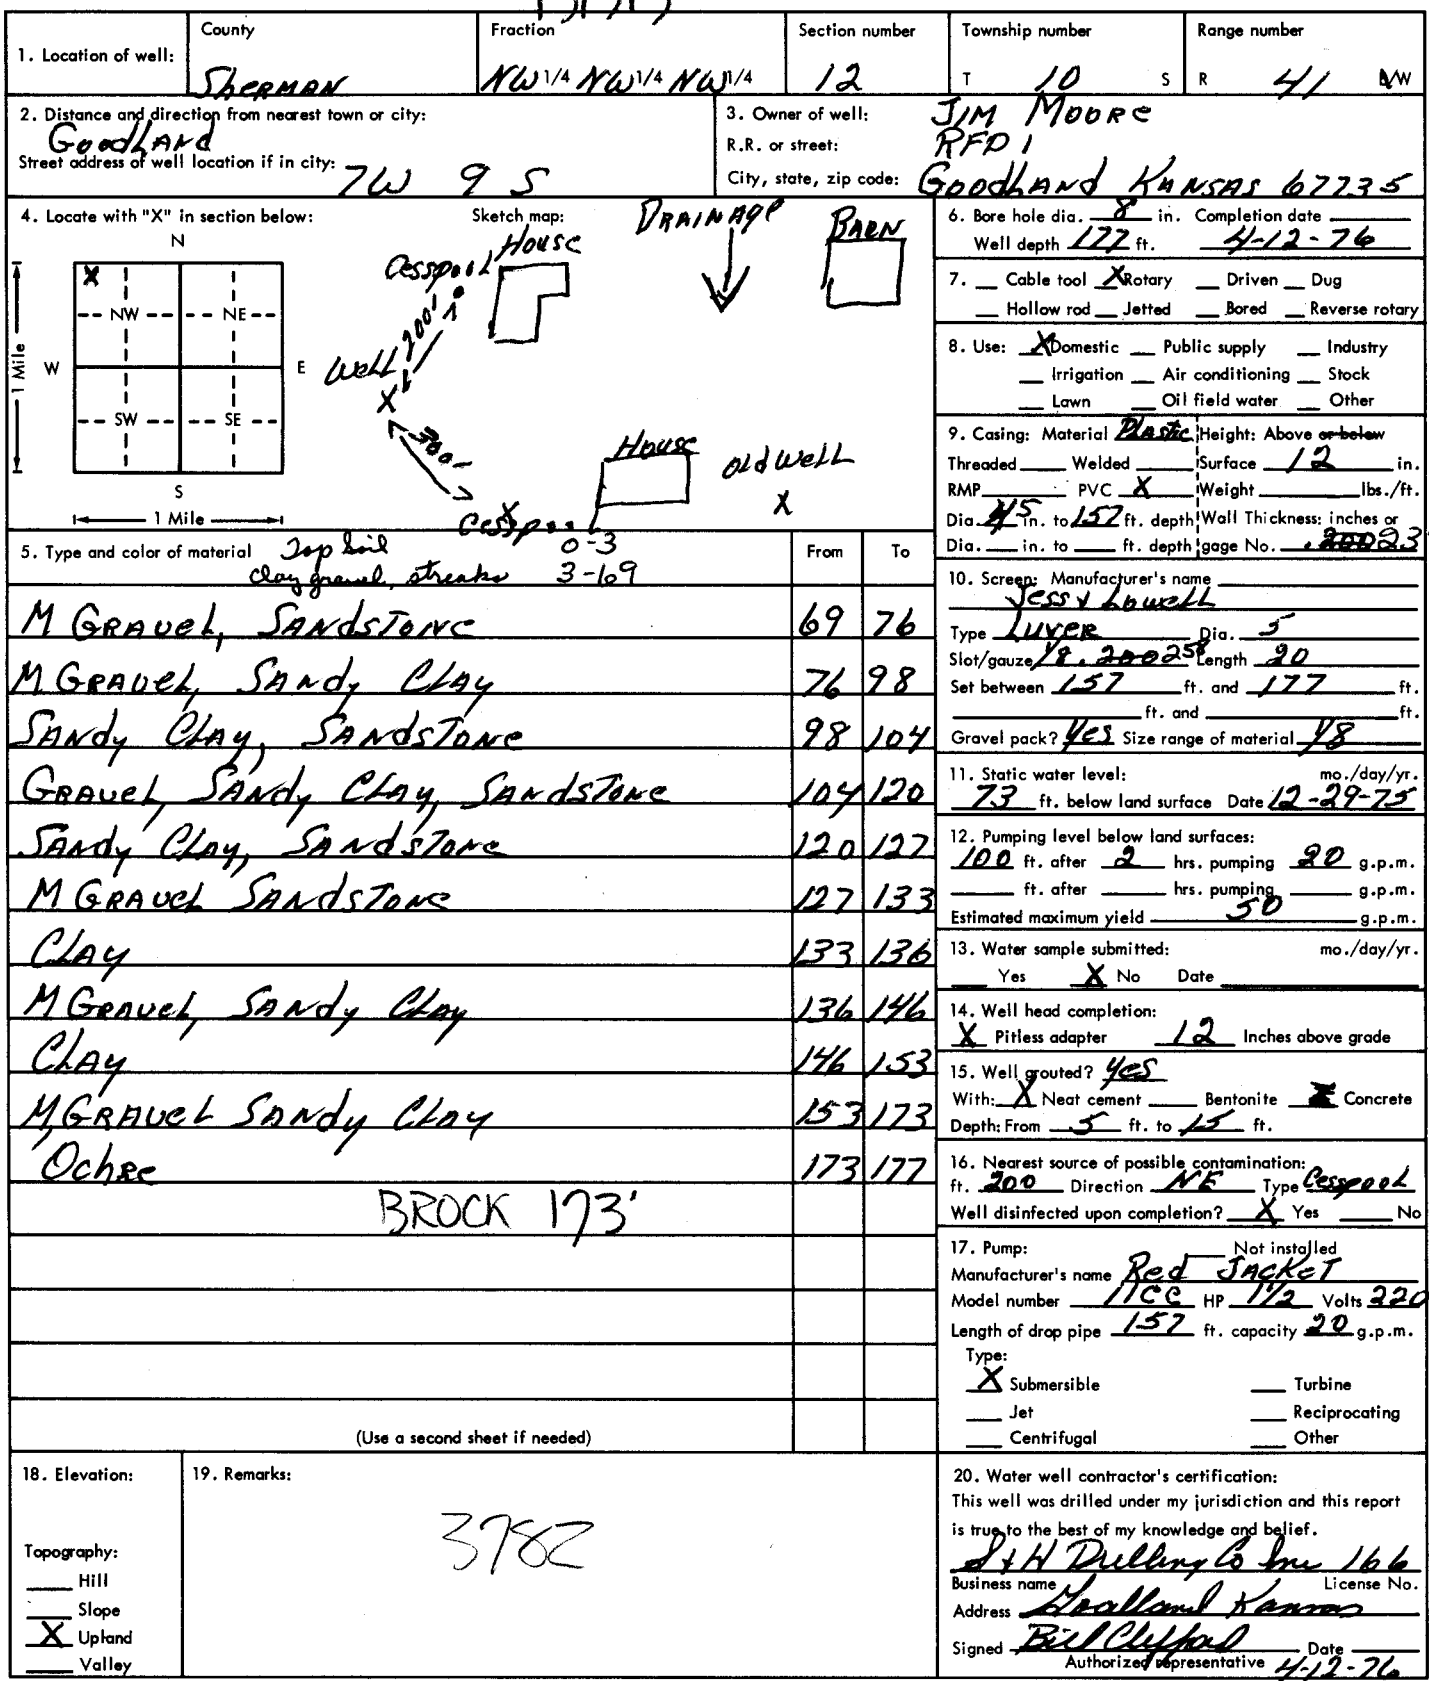 County Fraction Section number Township number Range number
1. Location of well: Sherman NW 1/4 NW 1/4 NW 1/4 12 T 10 S R 41 W
2. Distance and direction from nearest town or city:
Goodland
Street address of well location if in city: 7W 9 S
3. Owner of well: Jim Moore
R.R. or street: RFD 1
City, state, zip code: Goodland Kansas 67735
4. Locate with "X" in section below:
N
X
NW NE
W E
SW SE
S
1 Mile
1 Mile
Sketch map:
Drainage
Barn
House
Cesspool
200'
Well
X
House
Old Well
X
Cesspool
5. Type and color of material From To
Top Soil 0-3
clay gravel, streaks 3-69
M Gravel, Sandstone 69 76
M Gravel, Sandy Clay 76 98
Sandy Clay, Sandstone 98 104
Gravel, Sandy Clay, Sandstone 104 120
Sandy Clay, Sandstone 120 127
M Gravel Sandstone 127 133
Clay 133 136
M Gravel, Sandy Clay 136 146
Clay 146 153
M, Gravel Sandy Clay 153 173
Ochre 173 177
BROCK 173'
(Use a second sheet if needed)
6. Bore hole dia. 8 in. Completion date
Well depth 177 ft. 4-12-76
7. Cable tool X Rotary Driven Dug
Hollow rod Jetted Bored Reverse rotary
8. Use: X Domestic Public supply Industry
Irrigation Air conditioning Stock
Lawn Oil field water Other
9. Casing: Material Plastic Height: Above or below
Threaded Welded Surface 12 in.
RMP PVC X Weight lbs./ft.
Dia. 5 in. to 157 ft. depth Wall Thickness: inches or
Dia. in. to ft. depth gage No.
10. Screen: Manufacturer's name
Jess & Lowell
Type Luver Dia. 5
Slot/gauze 1/8 Length 20
Set between 157 ft. and 177 ft.
ft. and ft.
Gravel pack? Yes Size range of material 1/8
11. Static water level: mo./day/yr.
73 ft. below land surface Date 12-29-75
12. Pumping level below land surfaces:
100 ft. after 2 hrs. pumping 20 g.p.m.
ft. after hrs. pumping g.p.m.
Estimated maximum yield 50 g.p.m.
13. Water sample submitted: mo./day/yr.
Yes X No Date
14. Well head completion:
X Pitless adapter 12 Inches above grade
15. Well grouted? yes
With: X Neat cement Bentonite Concrete
Depth: From 5 ft. to 15 ft.
16. Nearest source of possible contamination:
ft. 200 Direction NE Type Cesspool
Well disinfected upon completion? X Yes No
17. Pump: Not installed
Manufacturer's name Red Jacket
Model number 11CC HP 1 1/2 Volts 220
Length of drop pipe 157 ft. capacity 20 g.p.m.
Type:
X Submersible Turbine
Jet Reciprocating
Centrifugal Other
18. Elevation:
Topography:
Hill
Slope
X Upland
Valley
19. Remarks:
3782
20. Water well contractor's certification:
This well was drilled under my jurisdiction and this report
is true to the best of my knowledge and belief.
S & H Drilling Co Inc 166
Business name License No.
Address Goodland Kansas
Signed Bill Clifford Date
Authorized representative 4-12-76